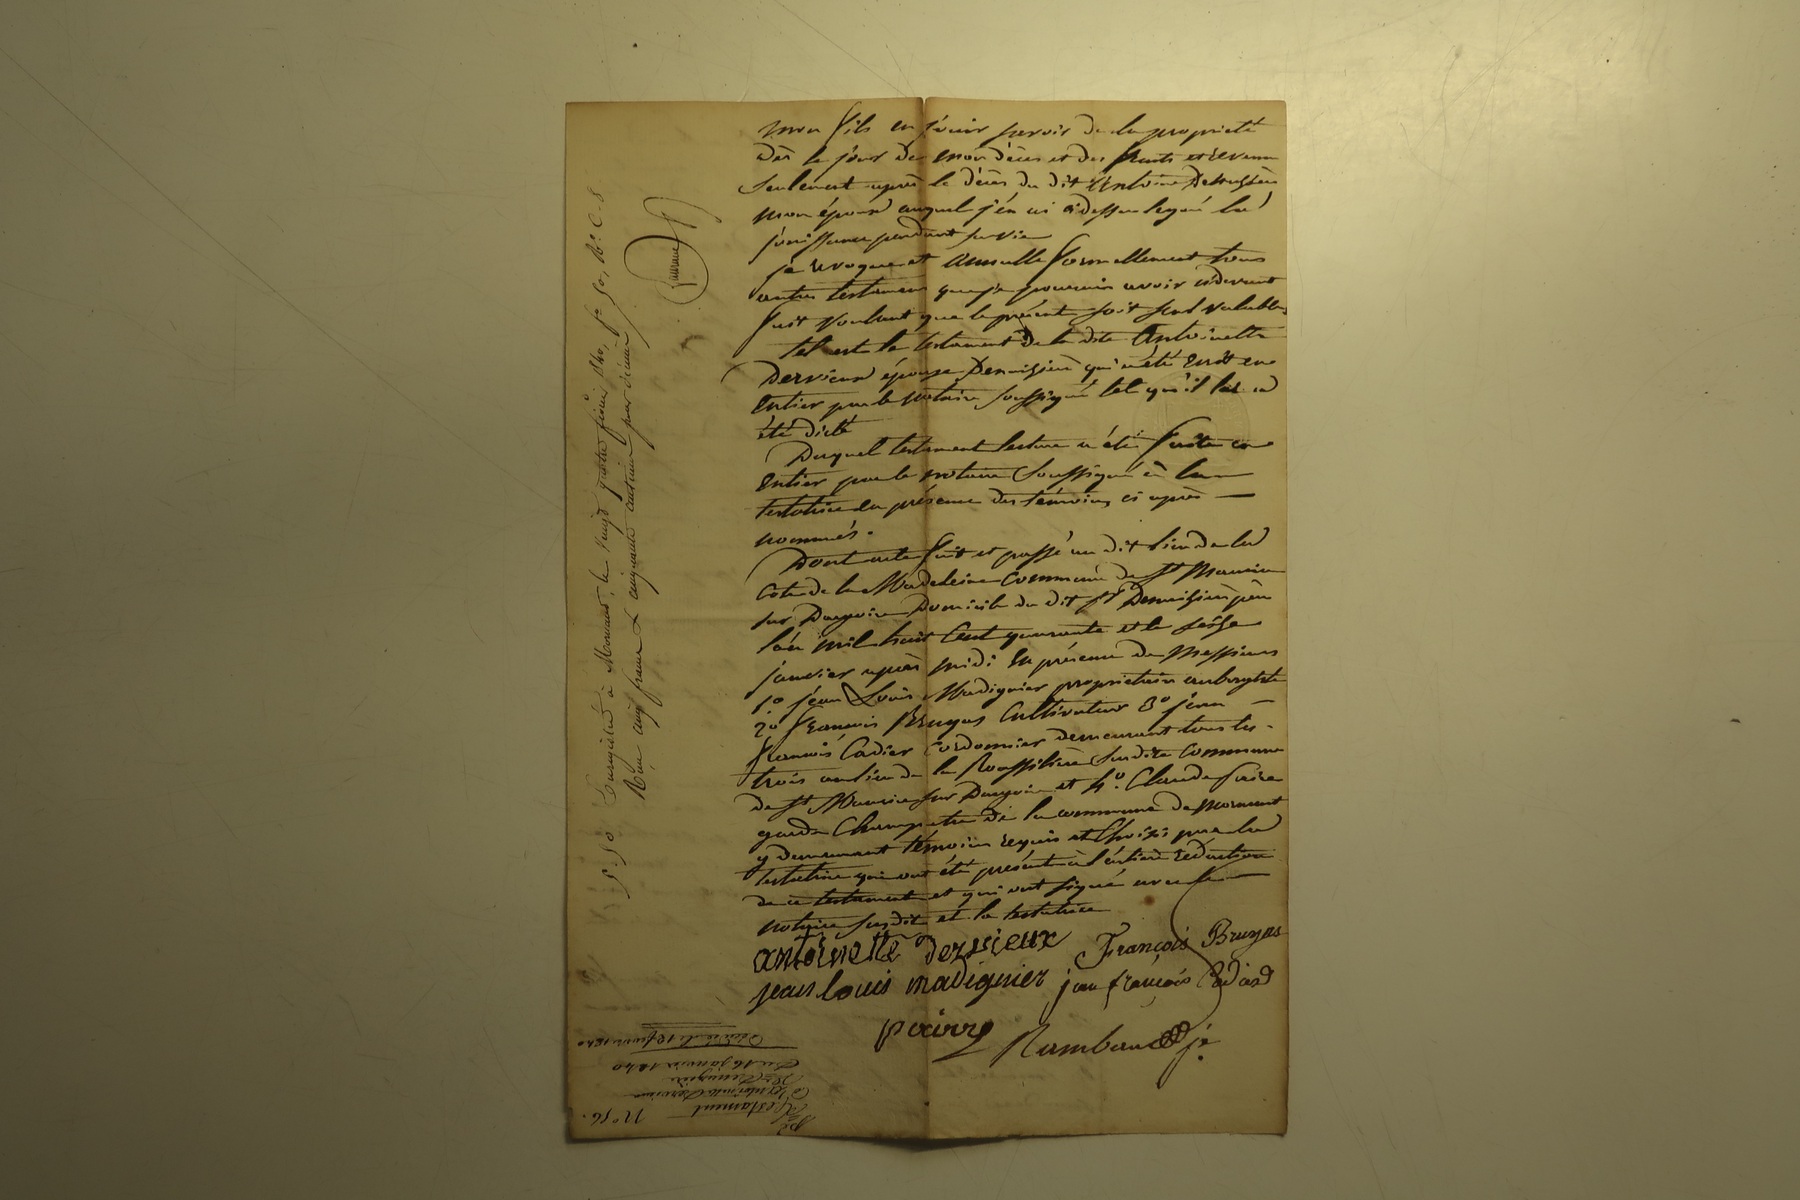 mon fils en jouir savoir de la proprieté
dès le jour de mon décès et des fruits et revenu
seulement après le décès du dit Antoine
mon époux auquel j'en ai cidessus legué la
jouissance pendant sa vie
je revoque et annulle formellement tous
autres testamens que je pourrais avoir cidevant
fait voulant que le présent soit seul valable
tel est le testament de la dite Antoinette
Dervieux épouse qui a été écrit en
entier par le notaire soussigné tel qu'il lui a
été dicté
Duquel testament lecture a été faite en
entier par le notaire soussigné à la
testatrice en présence des témoins ci après
nommés.
Dont acte fait et passé au dit lieu de la
Cote de la Madeleine commune de St Maurice
sur Dargoire domicile du dit Sr père
l'an mil huit cent quarante et le seize
janvier après midi en présence de messieurs
1o jean Louis Madignier propriétaire aubergiste
2o françois Bruyas cultivateur 3o jean
françois Cadier cordonnier demeurant tous les
trois au lieu de la Roussilière susdite commune
de St Maurice sur Dargoire et 4o. Claude
garde champetre de la commune de mornant
y demeurant témoins requis et choisis par la
testatrice qui ont été présents à l'entière rédaction
de ce testament et qui ont signé avec le
notaire susdit et la testatrice
antoinette dervieux François Bruyas
jean louis madignier jean françois
Rambaud
Enregistré à Mornant, le vingt quatre février 1840, fo 50, Ro C. 8
Reçu cinq francs & cinquante centimes pour décime
5-50
No 56.
Testament
d'antoinette Dervieux
Du 16 janvier 1840